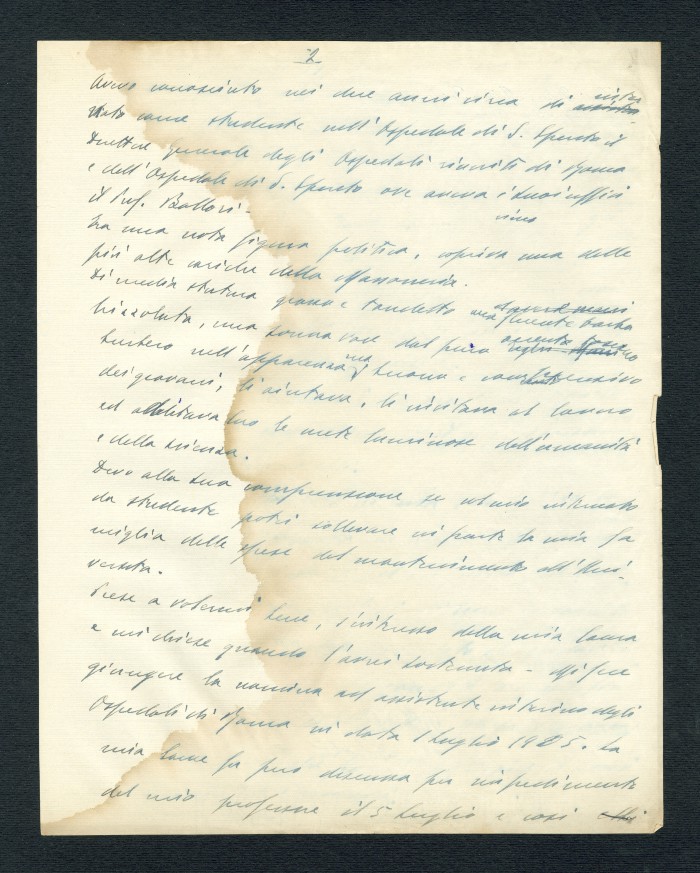 2
Avevo conosciuto nei due anni circa di
nato come studente nell'Ospedale di S. Spirito il
Direttore Generale degli Ospedali riuniti di Roma
e dell'Ospedale di S. Spirito ove aveva i suoi uffici
il Prof. Ballori -
Era una nota figura politica, copriva una delle
più alte cariche della Massoneria.
Di media statura grosso e tondetto una fluente barba
brizzolata, una buona voce dal puro accento
austero nell'apparenza ma buono e comprensivo
dei giovani; li aiutava, li incitava al lavoro
ed additava loro le mete luminose dell'umanità
e della scienza.
Devo alla sua comprensione se col mio internato
da studente potei sollevare in parte la mia fa
miglia delle spese del mantenimento all'Uni-
versità.
Prese a volermi bene, s'interessò della mia laurea
e mi chiese quando l'avrei sostenuta - Mi fece
giungere la nomina ad assistente interino degli
Ospedali di Roma in data 1 Luglio 1925. La
mia laurea fu però discussa per impedimento
del mio professore il 5 Luglio e così